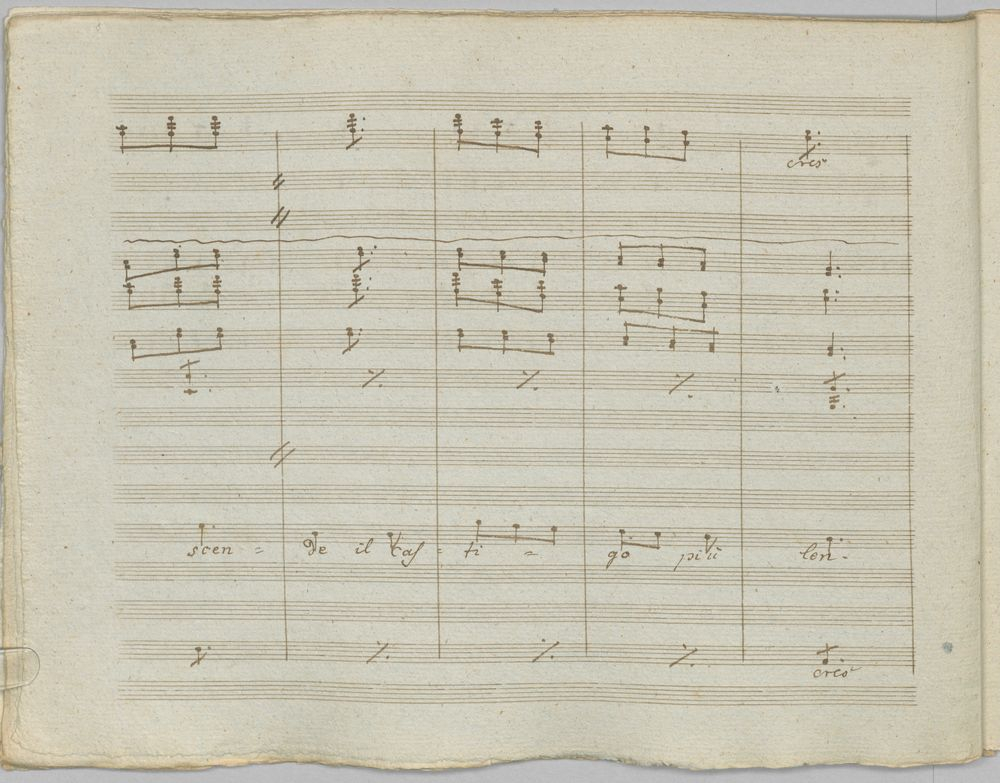 cres
scen = de il cas - ti = go più len -
cres